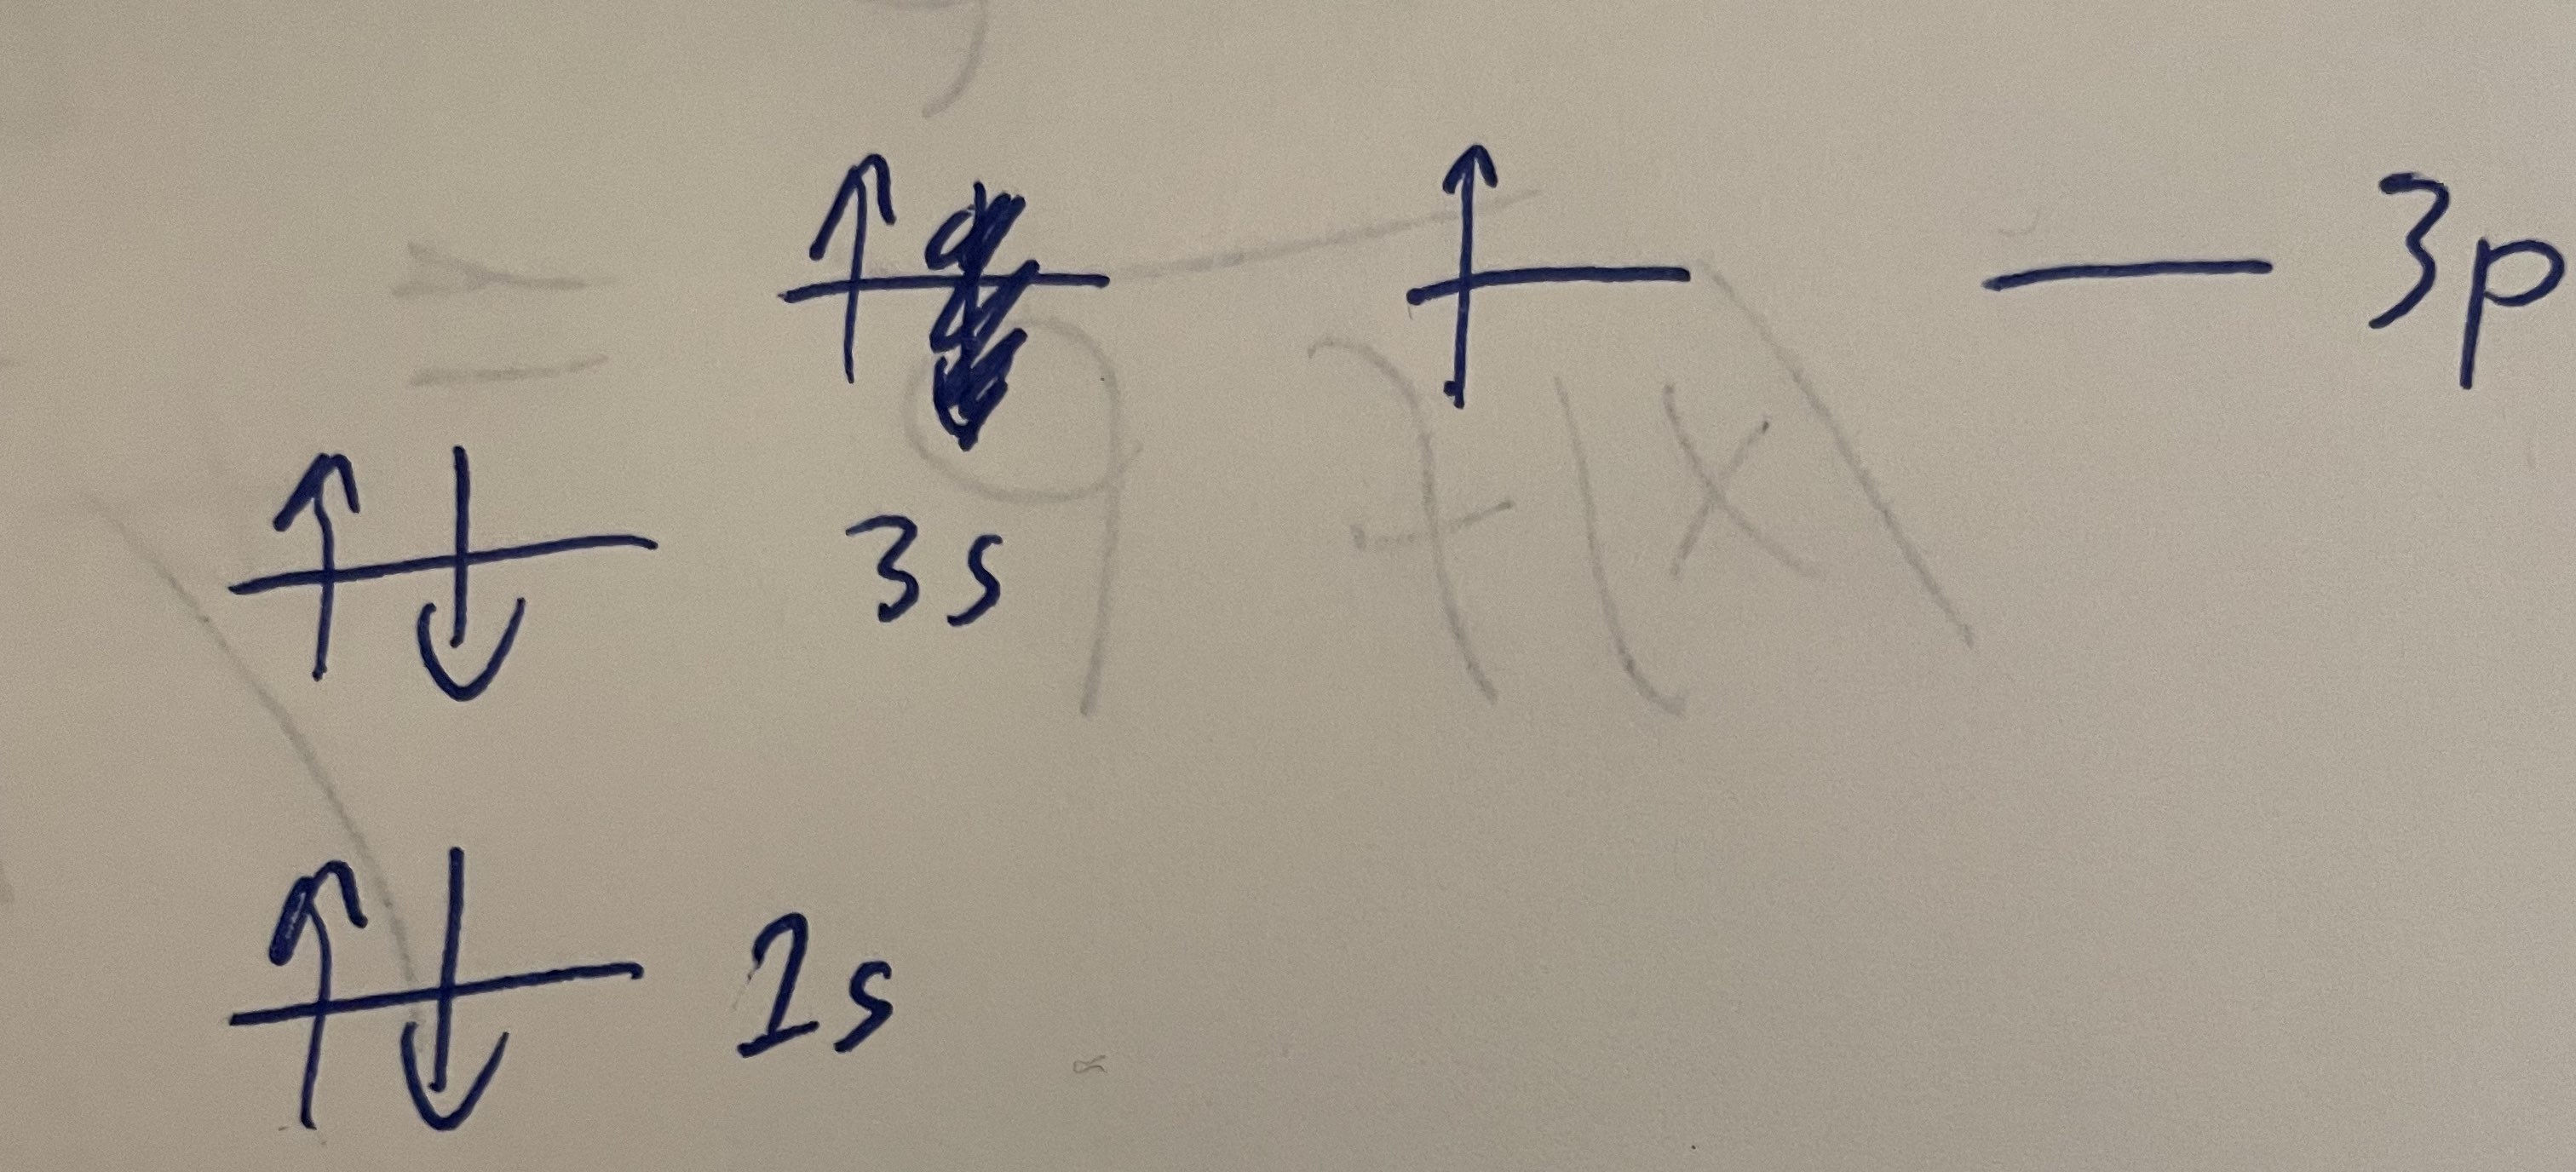 3p
3s
1s